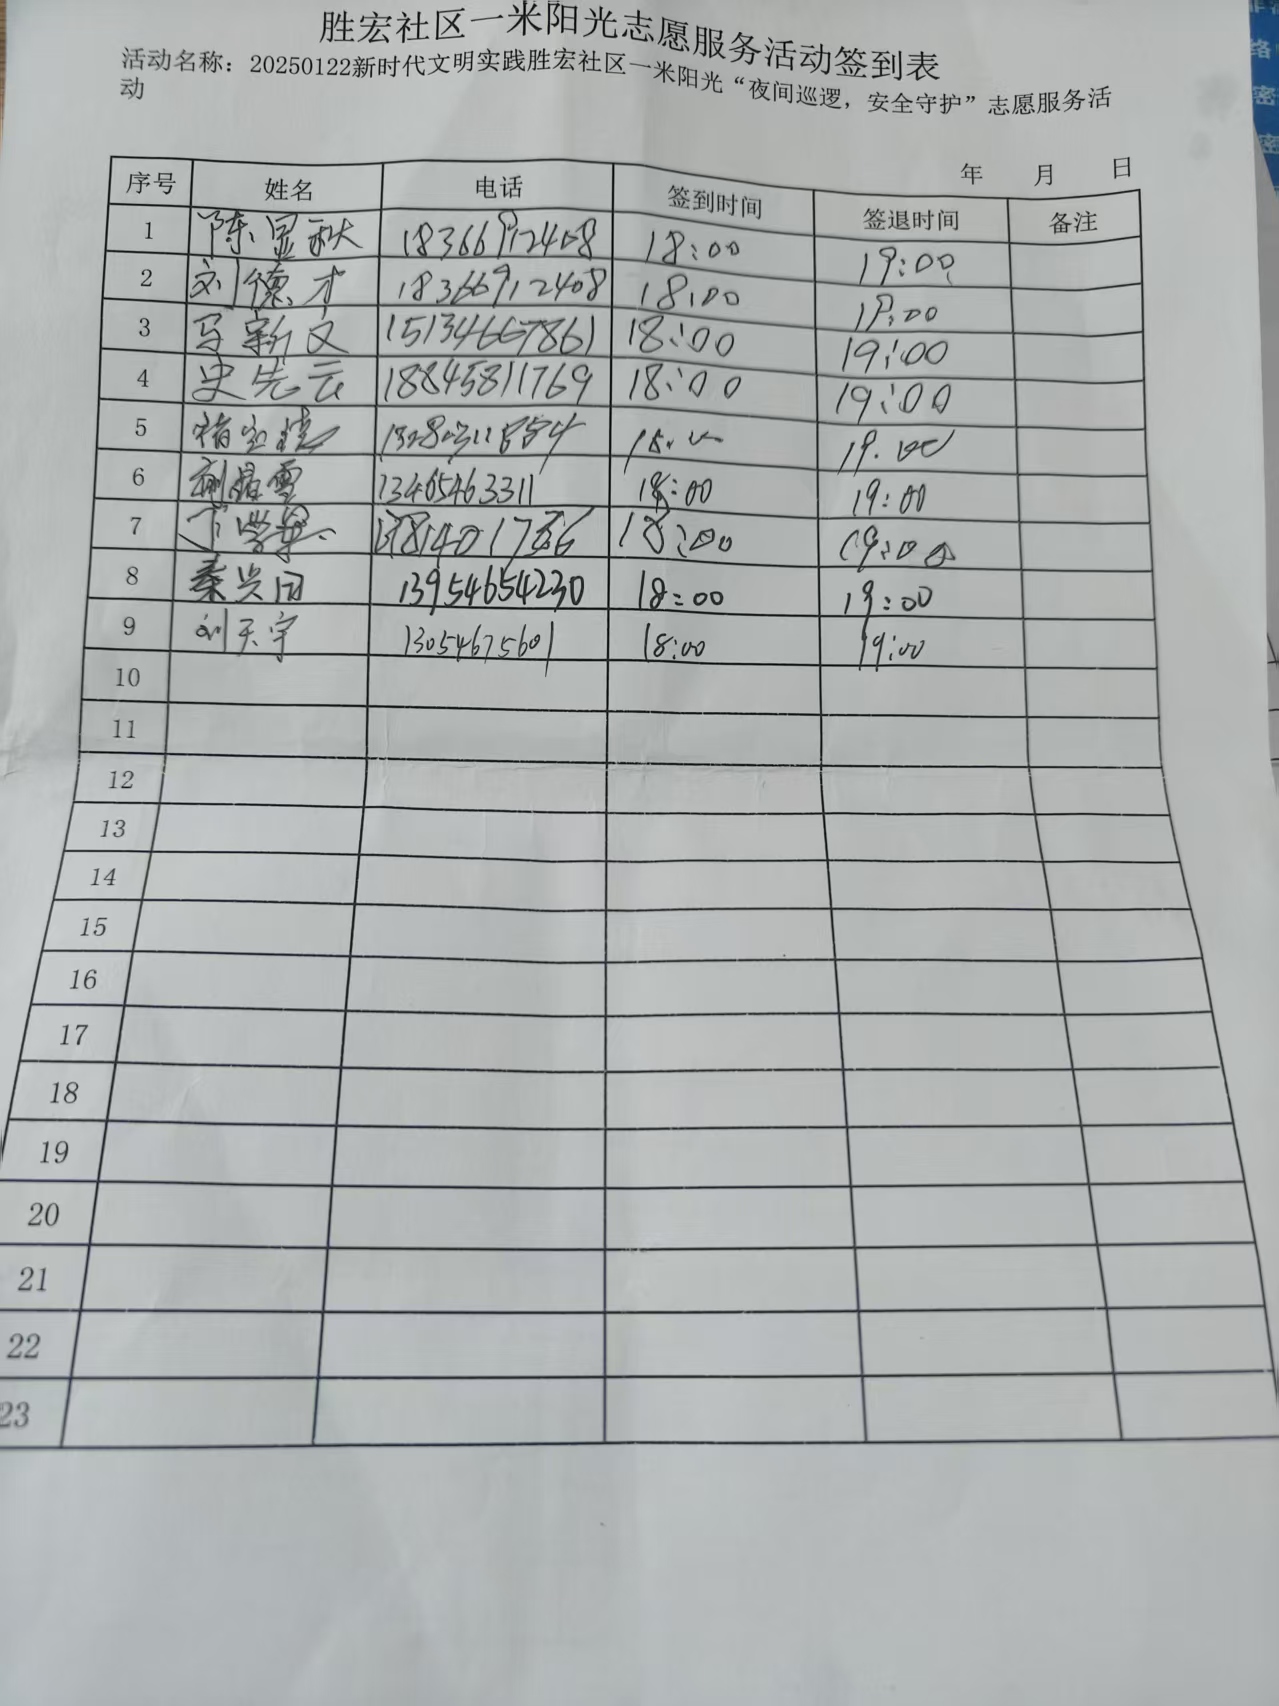 胜宏社区一米阳光志愿服务活动签到表
活动名称：20250122新时代文明实践胜宏社区一米阳光“夜间巡逻，安全守护”志愿服务活
动
年 月 日
序号 姓名 电话 签到时间 签退时间 备注
1 陈显秋 18366912408 18:00 19:00
2 刘德才 18366912408 18:00 19:00
3 马新文 15134667861 18:00 19:00
4 史先云 18845811769 18:00 19:00
5 19.00
6 13465463311 18:00 19:00
7 18:00 19:00
8 秦兴田 13954654230 18:00 19:00
9 刘天宇 13054675601 18:00 19:00
10
11
12
13
14
15
16
17
18
19
20
21
22
23